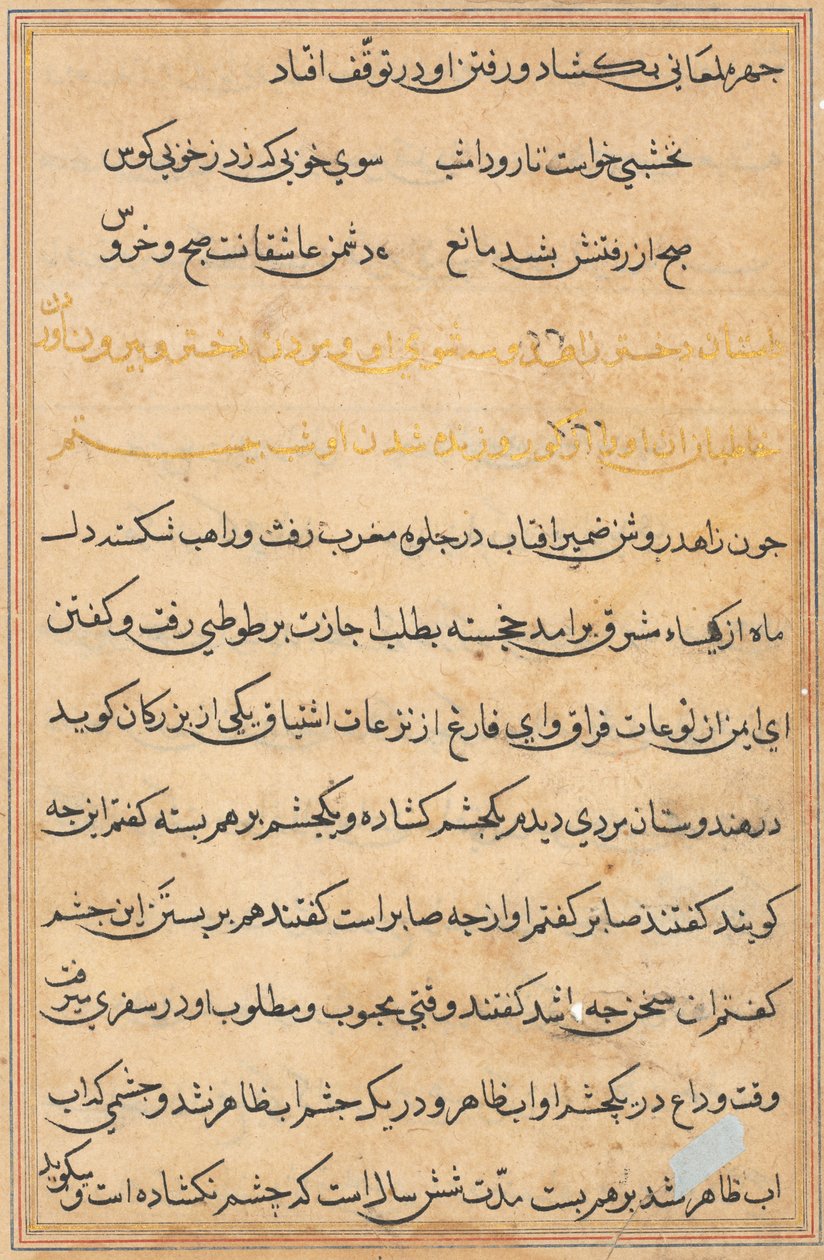 جهره لمعانی بکشاد و رفتن او در توقّف افتاد
نخشبي خواست تا رود امشب سوي خوبي که زد ز خوبی کوس
صبح از رفتنش بشد مانع دشمن عاشقانست صبح و خروس
داستان دختر زاهد و سه شوي او و مردن دختر و بیرون آوردن
خاطبان ان او را از کور و زنده شدن او شب بیستم
جون زاهد روشن ضمیر افتاب در جلوه مغرب رفت و راهب شکسته دل
ماه از کیساء مشرق برامد خجسته بطلب اجازت بر طوطي رفت و کفتن
اي ایمن از لوعات فراق و اي فارغ از نزعات اشتیاق یکي از بزرکان کوید
در هندوستان مردي دیدم یکجشم کشاده و یکجشم بر هم بسته کفتم این جه
کویند کفتند صابر کفتم او از جه صابر است کفتند هم بر بستن این جشم
کفتم ان سخن جه باشد کفتند وقتي محبوب و مطلوب او در سفري میرفت
وقت وداع در یکچشم او اب ظاهر و در یک جشم اب ظاهر نشد و جشمي که اب
اب ظاهر نشد بر هم بست مدّت شش سال است که چشم نکشاده است و میکوید